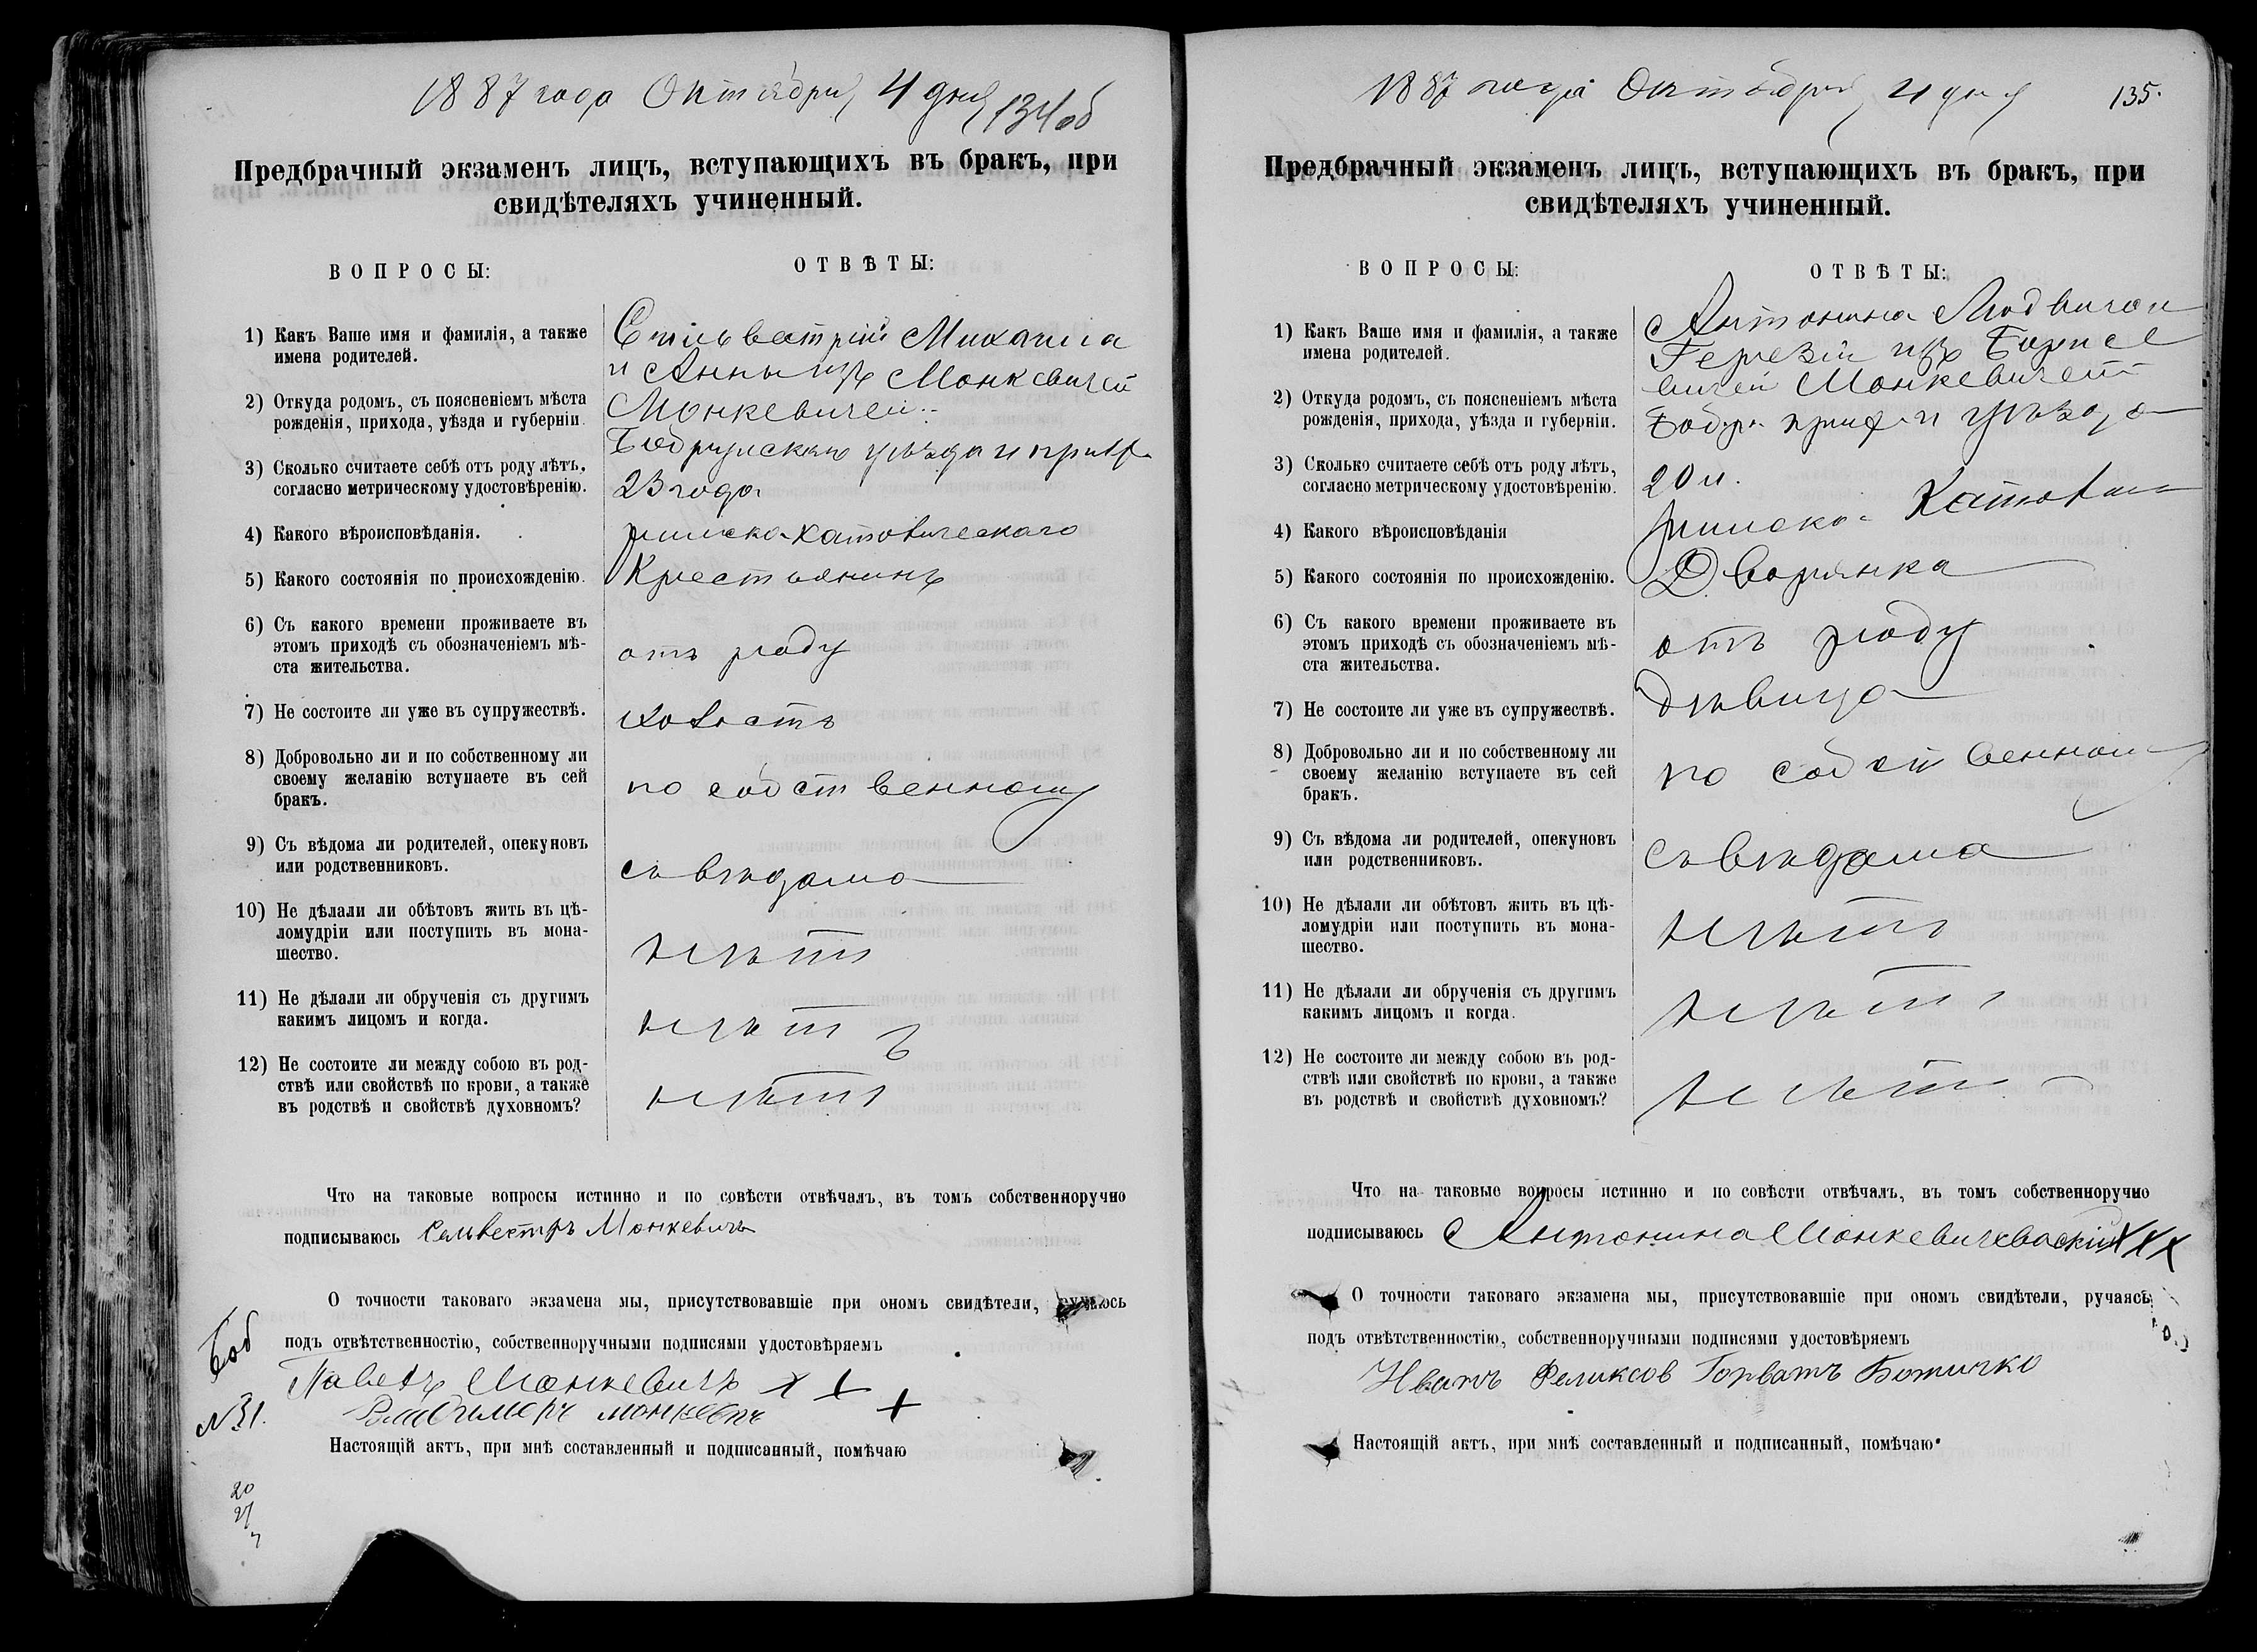 1887 года Октября 4 дня
134 об
Предбрачный экзаменъ лицъ, вступающихъ въ бракъ, при
свидѣтеляхъ учиненный.
ВОПРОСЫ:
ОТВѢТЫ:
1) Какъ Ваше имя и фамилія, а также
имена родителей.
Михаила
и Анны изъ Монкевичей
Монкевичей
2) Откуда родомъ, съ поясненіемъ мѣста
рожденія, прихода, уѣзда и губерніи.
Бобруйскаго уѣзда и прихо
3) Сколько считаете себѣ отъ роду лѣтъ,
согласно метрическому удостовѣренію.
23 года
4) Какого вѣроисповѣданія.
римско-католическаго
5) Какого состоянія по происхожденію.
Крестьянинъ
6) Съ какого времени проживаете въ
этомъ приходѣ съ обозначеніемъ мѣ-
ста жительства.
отъ роду
7) Не состоите ли уже въ супружествѣ.
холостъ
8) Добровольно ли и по собственному ли
своему желанію вступаете въ сей
бракъ.
по собственному
9) Съ вѣдома ли родителей, опекуновъ
или родственниковъ.
съ вѣдома
10) Не дѣлали ли обѣтовъ жить въ цѣ-
ломудріи или поступить въ мона-
шество.
нѣтъ
11) Не дѣлали ли обрученія съ другимъ
какимъ лицомъ и когда.
нѣтъ
12) Не состоите ли между собою въ род-
ствѣ или свойствѣ по крови, а также
въ родствѣ и свойствѣ духовномъ?
нѣтъ
Что на таковые вопросы истинно и по совѣсти отвѣчалъ, въ томъ собственноручно
подписываюсь Сельвестръ Монкевичъ
О точности таковаго экзамена мы, присутствовавшіе при ономъ свидѣтели, ручаюсь
подъ отвѣтственностію, собственноручными подписями удостовѣряемъ
Боб
№31.
Павелъ Монкевичъ + + +
Настоящій актъ, при мнѣ составленный и подписанный, помѣчаю
20
1887 года Октября 4 дня
135.
Предбрачный экзаменъ лицъ, вступающихъ въ бракъ, при
свидѣтеляхъ учиненный.
ВОПРОСЫ:
ОТВѢТЫ:
1) Какъ Ваше имя и фамилія, а также
имена родителей.
Антонина
изъ
Монкевичей
2) Откуда родомъ, съ поясненіемъ мѣста
рожденія, прихода, уѣзда и губерніи.
Бобр. прих. и уѣзда
3) Сколько считаете себѣ отъ роду лѣтъ,
согласно метрическому удостовѣренію.
20 л.
4) Какого вѣроисповѣданія
римско-
5) Какого состоянія по происхожденію.
Дворянка
6) Съ какого времени проживаете въ
этомъ приходѣ съ обозначеніемъ мѣ-
ста жительства.
отъ роду
7) Не состоите ли уже въ супружествѣ.
дѣвица
8) Добровольно ли и по собственному ли
своему желанію вступаете въ сей
бракъ.
по собственному
9) Съ вѣдома ли родителей, опекуновъ
или родственниковъ.
съ вѣдома
10) Не дѣлали ли обѣтовъ жить въ цѣ-
ломудріи или поступить въ мона-
шество.
нѣтъ
11) Не дѣлали ли обрученія съ другимъ
какимъ лицомъ и когда.
нѣтъ
12) Не состоите ли между собою въ род-
ствѣ или свойствѣ по крови, а также
въ родствѣ и свойствѣ духовномъ?
нѣтъ
Что на таковые вопросы истинно и по совѣсти отвѣчалъ, въ томъ собственноручно
подписываюсь Антонина XXX
О точности таковаго экзамена мы, присутствовавшіе при ономъ свидѣтели, ручаясь
подъ отвѣтственностію, собственноручными подписями удостовѣряемъ
Иванъ Феликсов Горватъ Божичко
Настоящій актъ, при мнѣ составленный и подписанный, помѣчаю